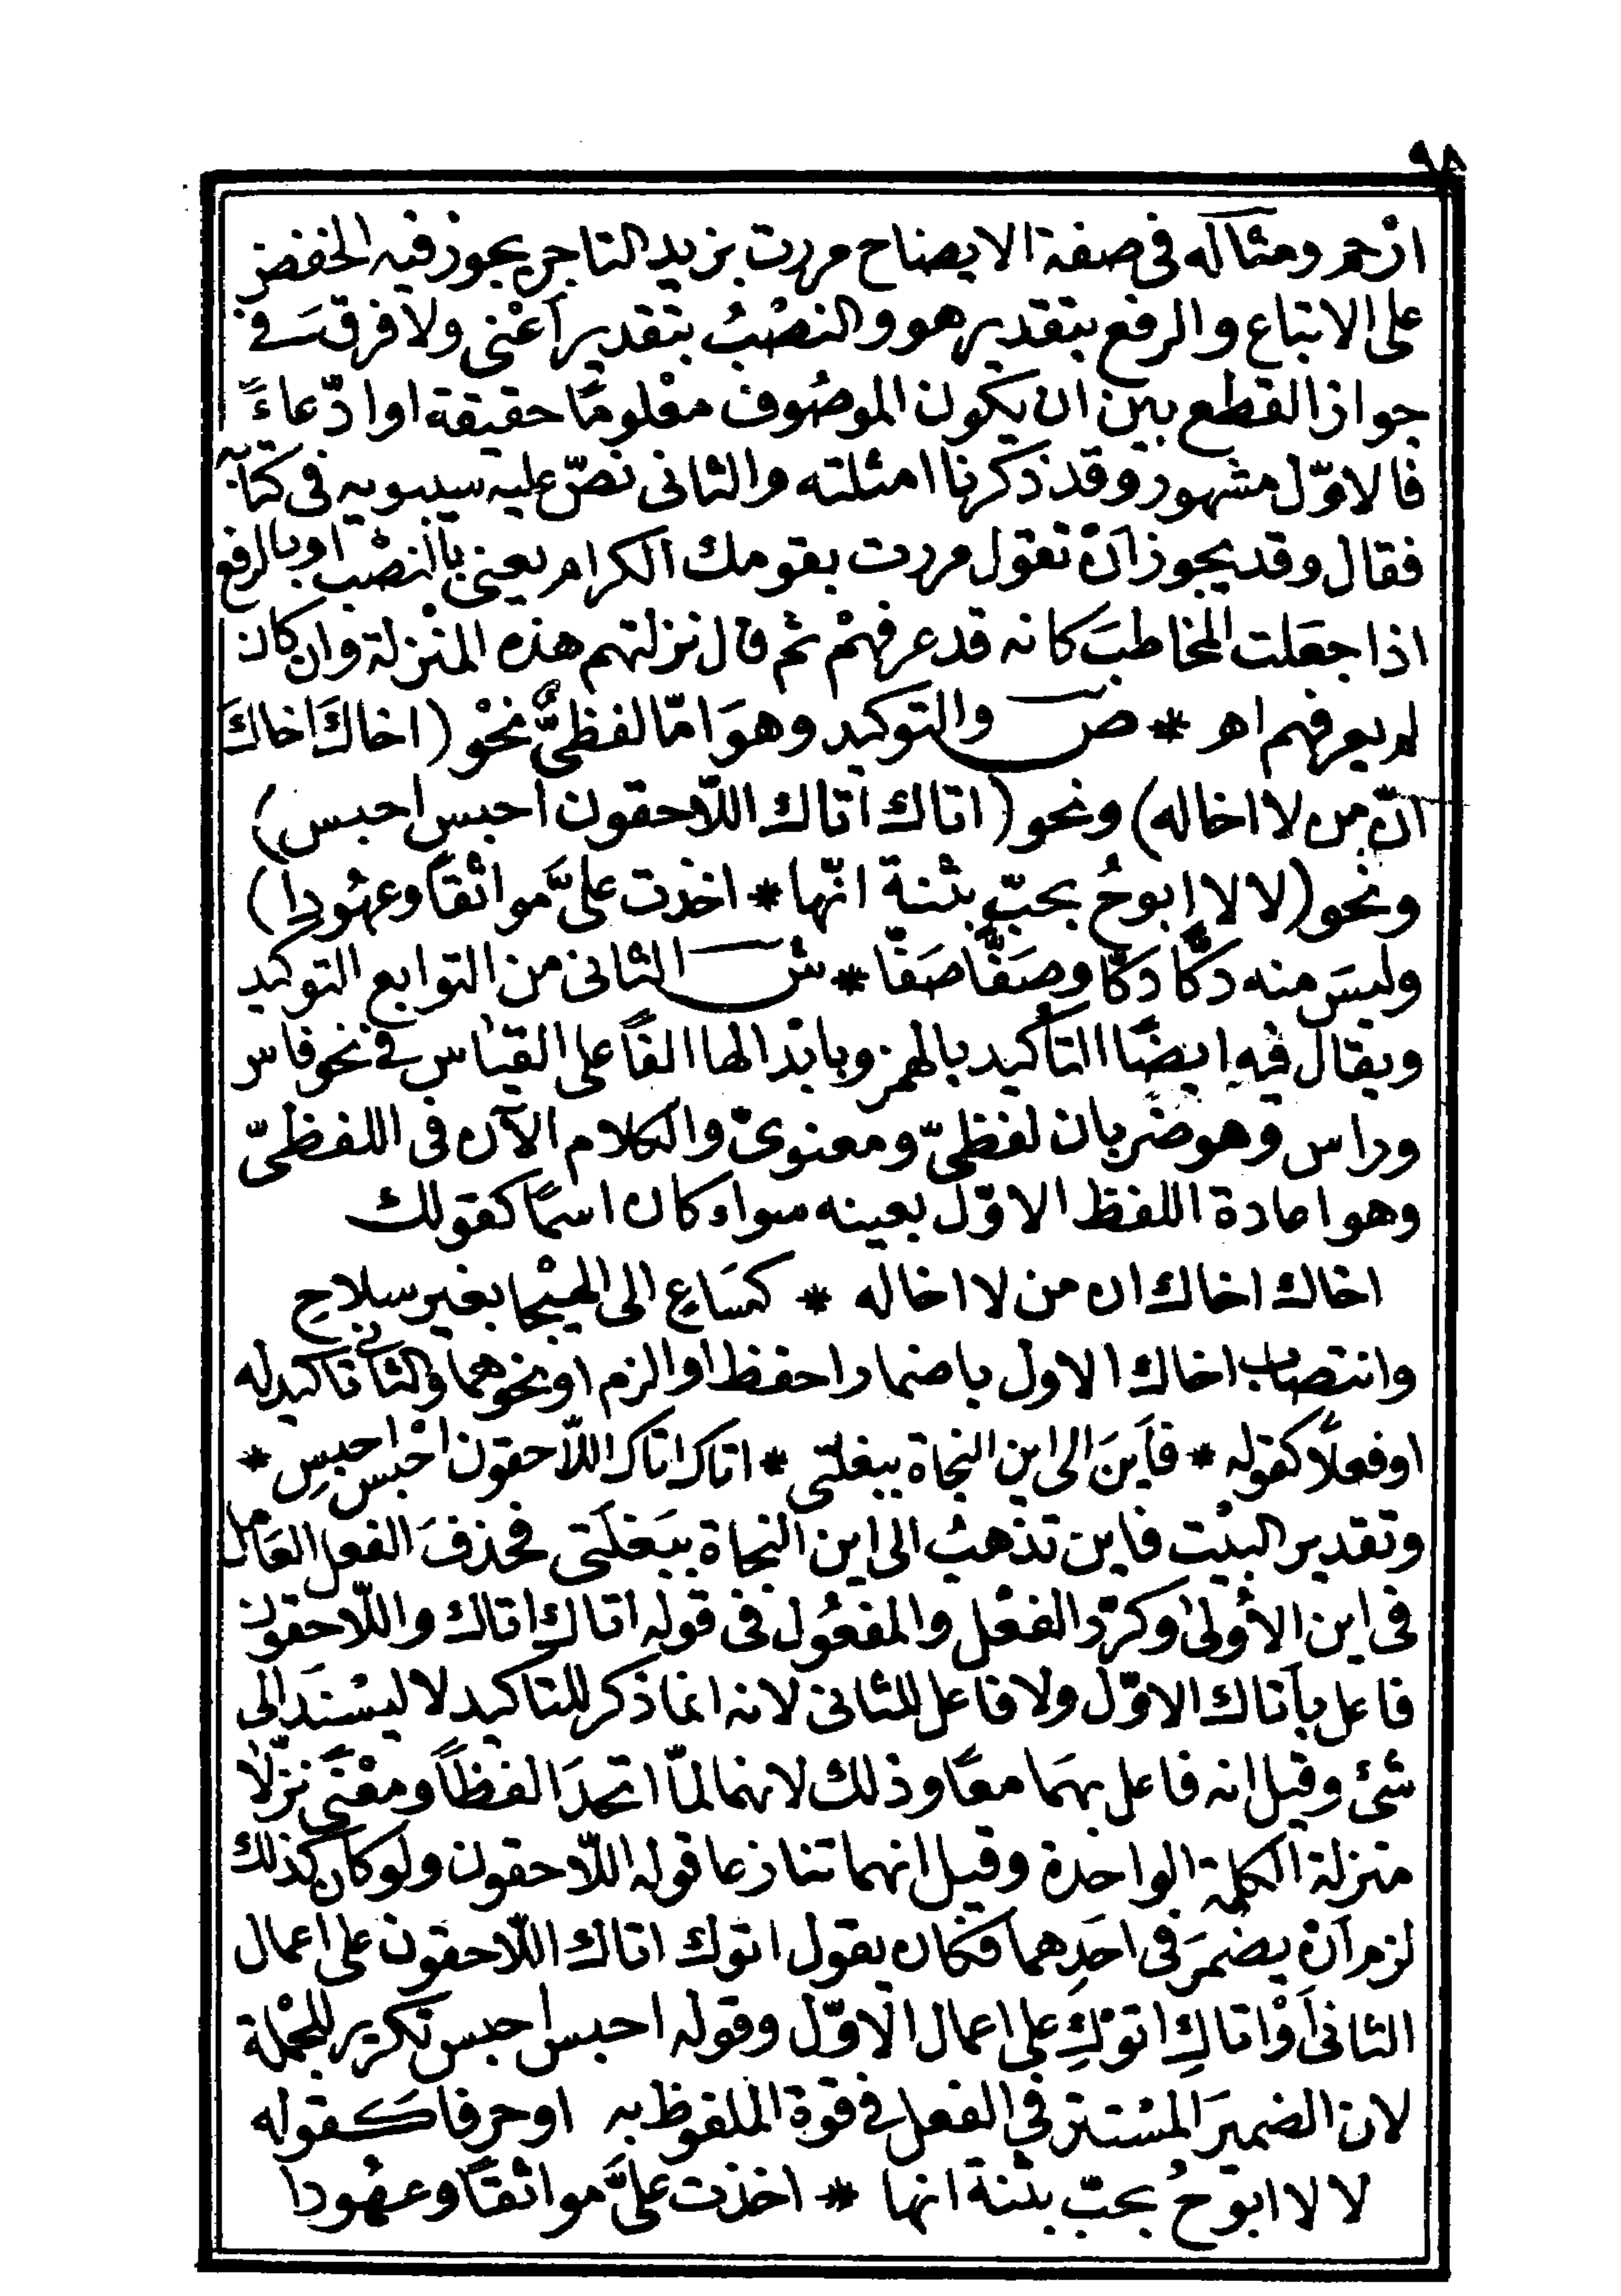 ٩٨
ارْحم ومثاله فى صفة الايضاح مررت بزيد التاجر يجوز فيه الخفض
على الاتباع والرفع بتقدير هو والنصْبُ بتقدير أعْنى ولا فرق فى
جواز القطع بين ان يكون الموصُوف معْلومًا حقيقة او ادّعاءً
فالاوّل مشهور وقد ذكرنا امثلته والثانى نصّ عليه سيبويه فى كتابه
فقال وقد يجوز أنْ تقول مررت بقومك الكرام يعنى بالنصْب او بالرفع
اذا جعَلت المخاطبَ كانه قد عرفهمْ ثم قال نزلتهم هذه المنْزلة وان كان
لم يعرفهم اهـ * ص والتوكيد وهوَ امّا لفظىٌّ نحْو (اخاكَ اخاكَ
انّ من لا اخا له) ونحو (اتاك اتاك اللّاحقون احبس احبس)
ونحو (لا لا ابوحُ بحبّ بثنة انّها * اخذت علىَّ مواثقًا وعهُودا)
وليسَ منه دكًّا دكًّا وصَفًّا صَفًّا * ش الثانى من التوابع التوكيد
ويقال فيه ايضًا التأكيد بالهمز وبابْدالها الفًا على القيَاس فى نحو فاس
وراس وهو ضربان لفظىّ ومعنوىّ والكلام الآن فى اللفظىّ
وهو اعادة اللفظ الاوّل بعينه سواء كان اسمًا كقولك
اخاك اخاك ان من لا اخا له * كسَاعٍ الى الهيْجا بغير سلاح
وانتصاب اخاك الاول باضمار احفظ او الزم او نحوهما والثانى تاكيد له
او فعلًا كقوله * فأينَ الى اين النجاة ببغلتى * اتاك اتاك اللّاحقون احْبس احبسِ *
وتقدير البيْت فاين تذهبُ الى اين النجاة ببَغلَتى فحذفَ الفعل العَامل
فى اين الأولىٰ وكرّر الفعْل والمفعُول فى قوله اتاك اتاك واللّاحقون
فاعل بأتاك الاوّل ولا فاعل للثانى لانه انما ذكر للتاكيد لا ليسْندَ الى
شئ وقيل انه فاعل بهمَا معًا وذلك لانهما لمّا اتحدَا لفظًا ومعْنًى نزّلا
منزلة الكلمة الواحدة وقيل انهما تنازعا قوله اللّاحقون ولو كان كذلك
لزم أنْ يضمرَ فى احَدِهما فكان يقول اتوك اتاك اللّاحقون على اعمال
الثانى أوْ اتاكِ اتوْكِ على اعمال الاوّل وقوله احبس احبس تكرير للجمْلة
لان الضميرَ المسْتتر فى الفعل فى قوة الملفوظ به او حرفا كقوله
لا لا ابوحُ بحبّ بثنة انها * اخذت علىَّ مواثقًا وعهُودا